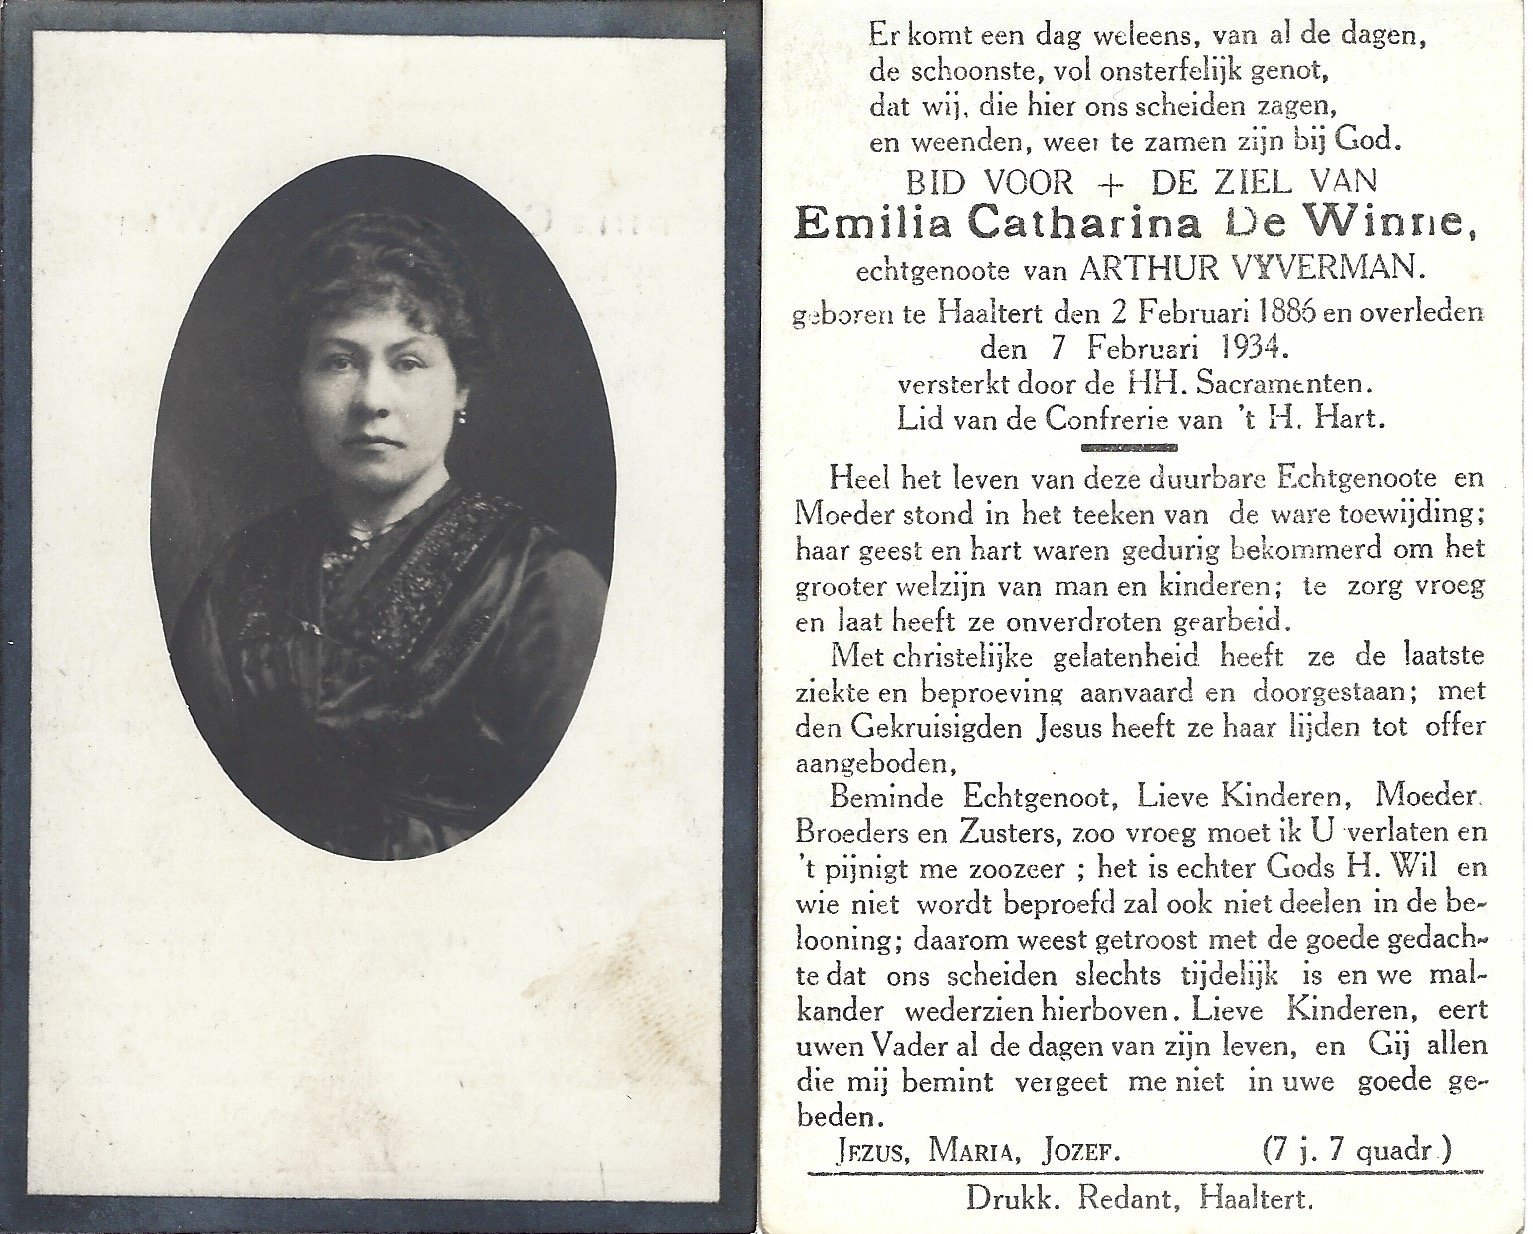 Er komt een dag weleens, van al de dagen,
de schoonste, vol onsterfelijk genot,
dat wij, die hier ons scheiden zagen,
en weenden, weer te zamen zijn bij God.
BID VOOR + DE ZIEL VAN
Emilia Catharina De Winne,
echtgenoote van ARTHUR VYVERMAN.
geboren te Haaltert den 2 Februari 1886 en overleden
den 7 Februari 1934.
versterkt door de HH. Sacramenten.
Lid van de Confrerie van 't H. Hart.
Heel het leven van deze duurbare Echtgenoote en
Moeder stond in het teeken van de ware toewijding;
haar geest en hart waren gedurig bekommerd om het
grooter welzijn van man en kinderen; te zorg vroeg
en laat heeft ze onverdroten gearbeid.
Met christelijke gelatenheid heeft ze de laatste
ziekte en beproeving aanvaard en doorgestaan; met
den Gekruisigden Jesus heeft ze haar lijden tot offer
aangeboden,
Beminde Echtgenoot, Lieve Kinderen, Moeder.
Broeders en Zusters, zoo vroeg moet ik U verlaten en
't pijnigt me zoozeer ; het is echter Gods H. Wil en
wie niet wordt beproefd zal ook niet deelen in de be-
looning; daarom weest getroost met de goede gedach-
te dat ons scheiden slechts tijdelijk is en we mal-
kander wederzien hierboven. Lieve Kinderen, eert
uwen Vader al de dagen van zijn leven, en Gij allen
die mij bemint vergeet me niet in uwe goede ge-
beden.
JEZUS, MARIA, JOZEF. (7 j. 7 quadr.)
Drukk. Redant, Haaltert.